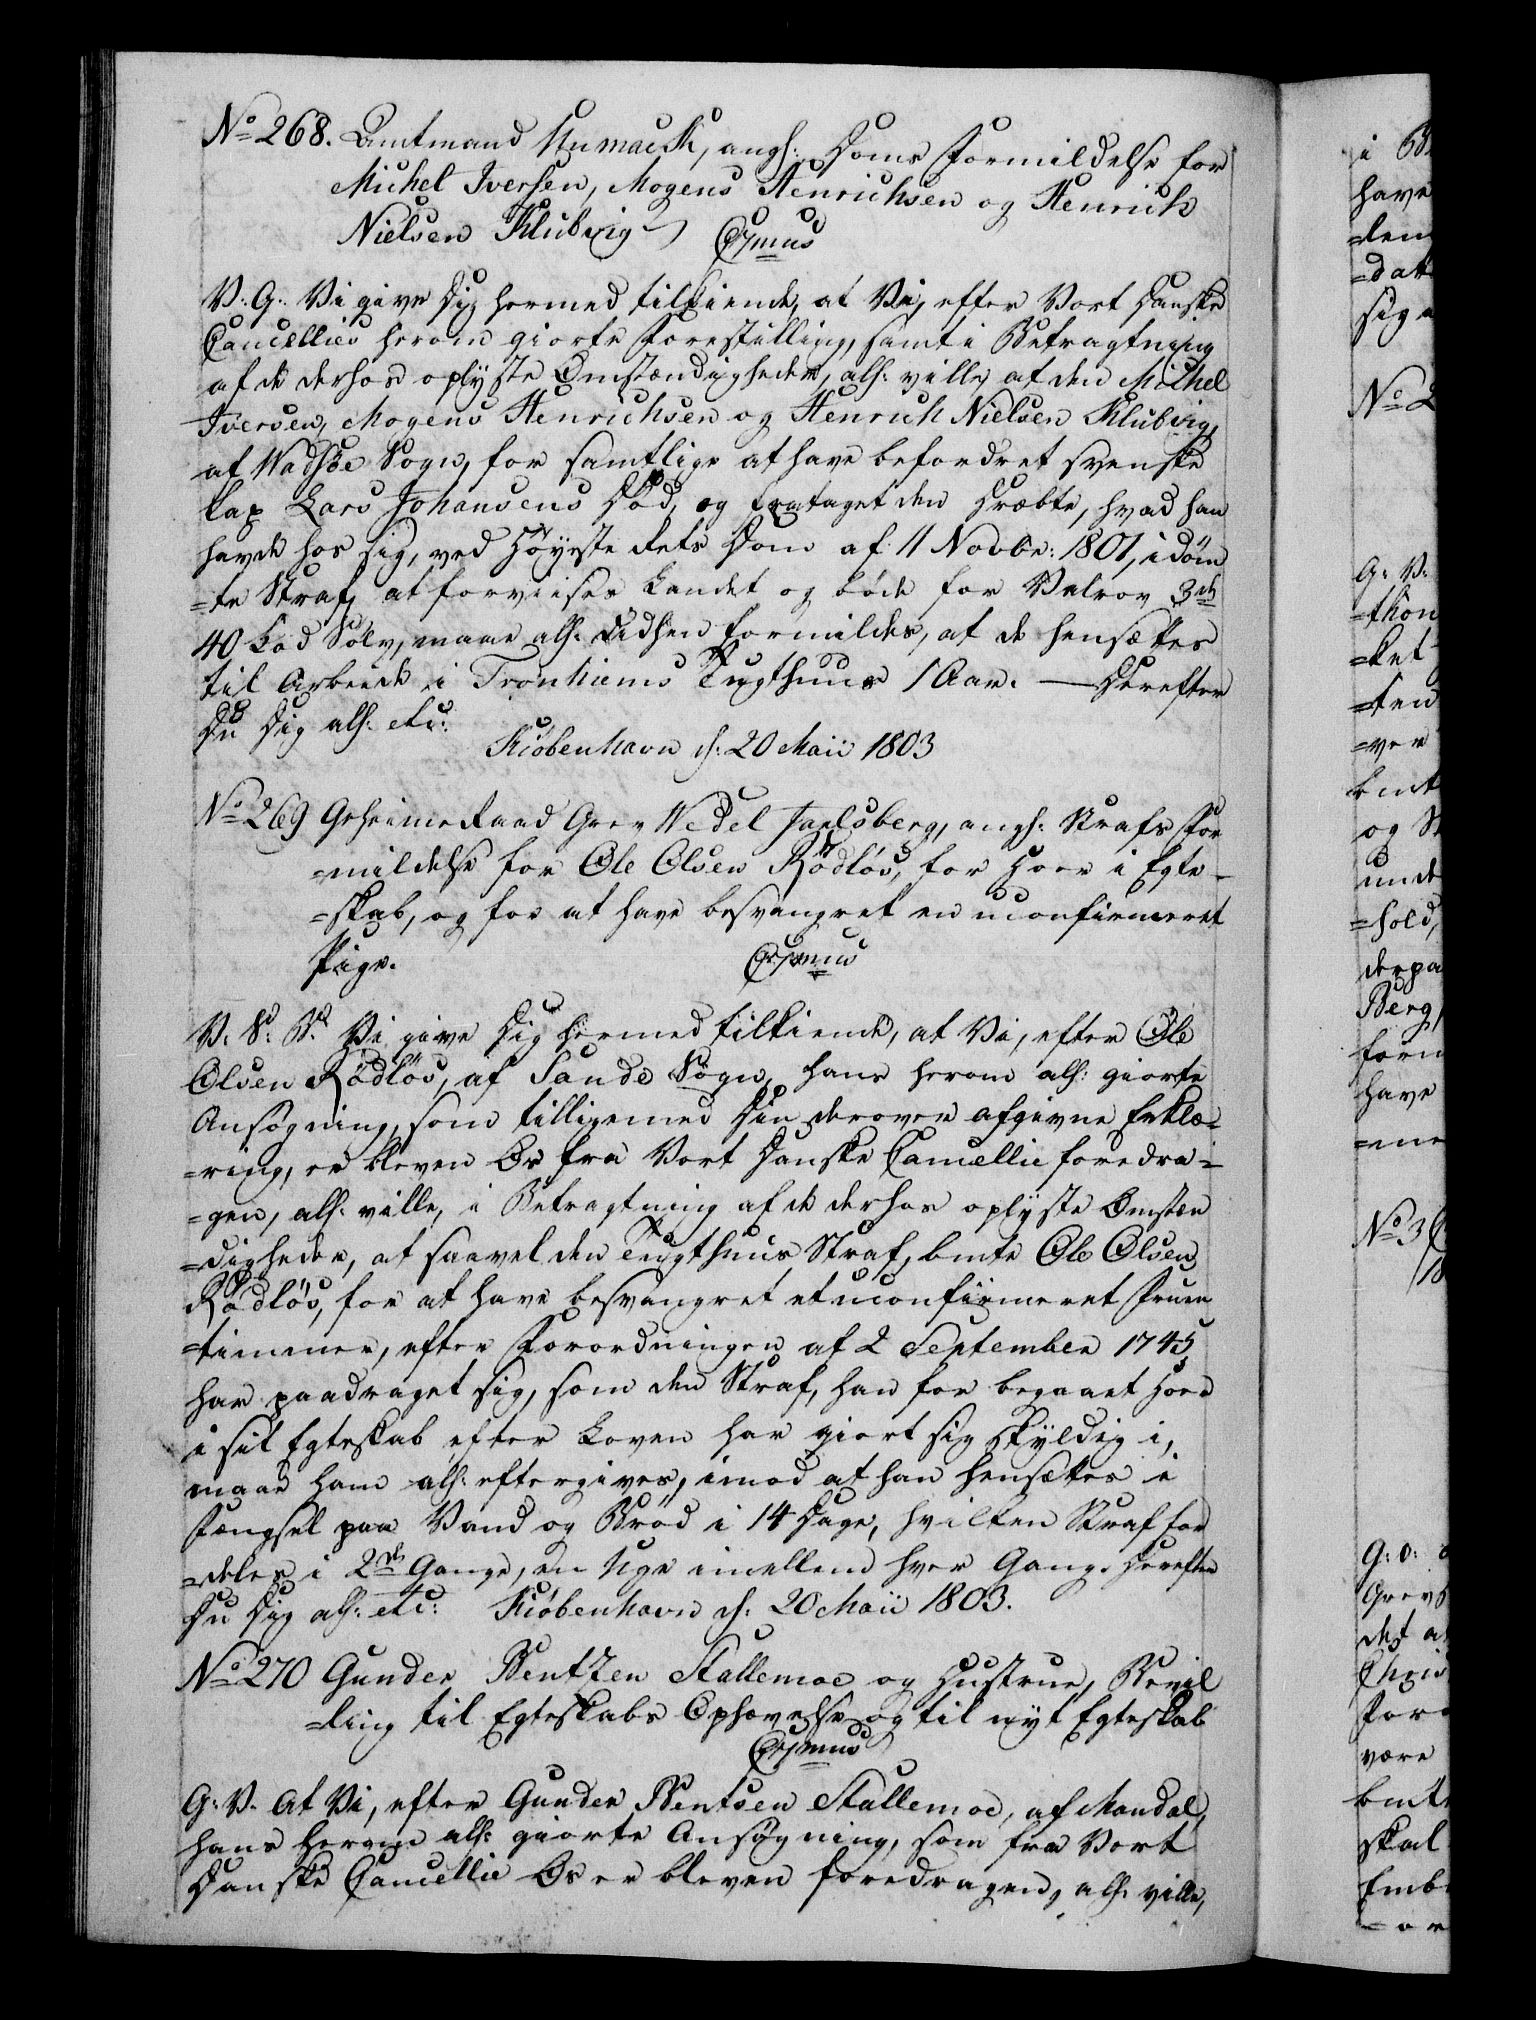 No 268. Amtmand Sumack, angl: Doms Formildelse for
Michel Iversen, Mogens Henrichsen og Henrich
Nielsen Klubvig
V: G: Vi give Dig hermed tilkiende, at Vi, efter Vort Danske
Cancellies herom giorte Forestilling, samt i Betragtning
af de derhos oplyste Omstændigheder, all: ville, at den Michel
Iversen, Mogens Henrichsen og Henrich Nielsen Klubvig,
af Wadsøe Sogn, for samtlige at have befordret svenske
Lap Lars Johansens Død, og frataget den Dræbte, hvad han
havde hos sig, ved Høyeste Rets Dom af 11 Novbr: 1801, idøm
=te Straf, at forviises Landet og bøde for Valrov 3de
40 Lod Sølv, maae all: didhen formildes, at de hensættes
til Arbeide i Tronhiems Tugthuus 1 Aar. — Derefter
Du Dig all: etc:
Kiøbenhavn d: 20 Maii 1803
No 269 Geheimeraad Grev Wedel Jarlsberg, angl: Strafs For
=mildelse for Ole Olsen Rødløs, for Hoer i Egte-
=skab, og for at have besvangret en uconfirmeret
Pige.
V. S. B. Vi give Dig hermed tilkiende, at Vi, efter Ole
Olsen Rødløs, af Sande Sogn, hans herom all: giorte
Ansøgning, som tilligemed Din derover afgivne Erklæ-
=ring, er bleven Os fra Vort Danske Cancellie foredra-
=gen, all: ville, i Betragtning af de derhos oplyste Omstæn
=digheder, at saavel den Tugthuus Straf, bmte Ole Olsen
Rødløs, for at have besvangret et uconfirmeret Fruen
=timmer, efter Forordningen af 2 September 1745
har paadraget sig, som den Straf, han for begaaet Hoer
i sit Egteskab efter Loven har giort sig skyldig i,
maae ham all: eftergives, imod at han hensættes i
Fængsel paa Vand og Brød i 14 Dage, hvilken Straf for
=deles i 2de Gange, en Uge imellem hver Gang. Derefter
Du Dig all: etc: Kiøbenhavn d: 20 Maii 1803.
No 270 Gunder Bentzen Stallemoe og Hustrue, Bevil
=ling til Egteskabs Ophævelse og til nyt Egteskab
G: V. At Vi, efter Gunder Bentsen Stallemoe, af Mandal,
hans herom all: giorte Ansøgning, som fra Vort
Danske Cancellie Os er bleven foredragen, all: ville,